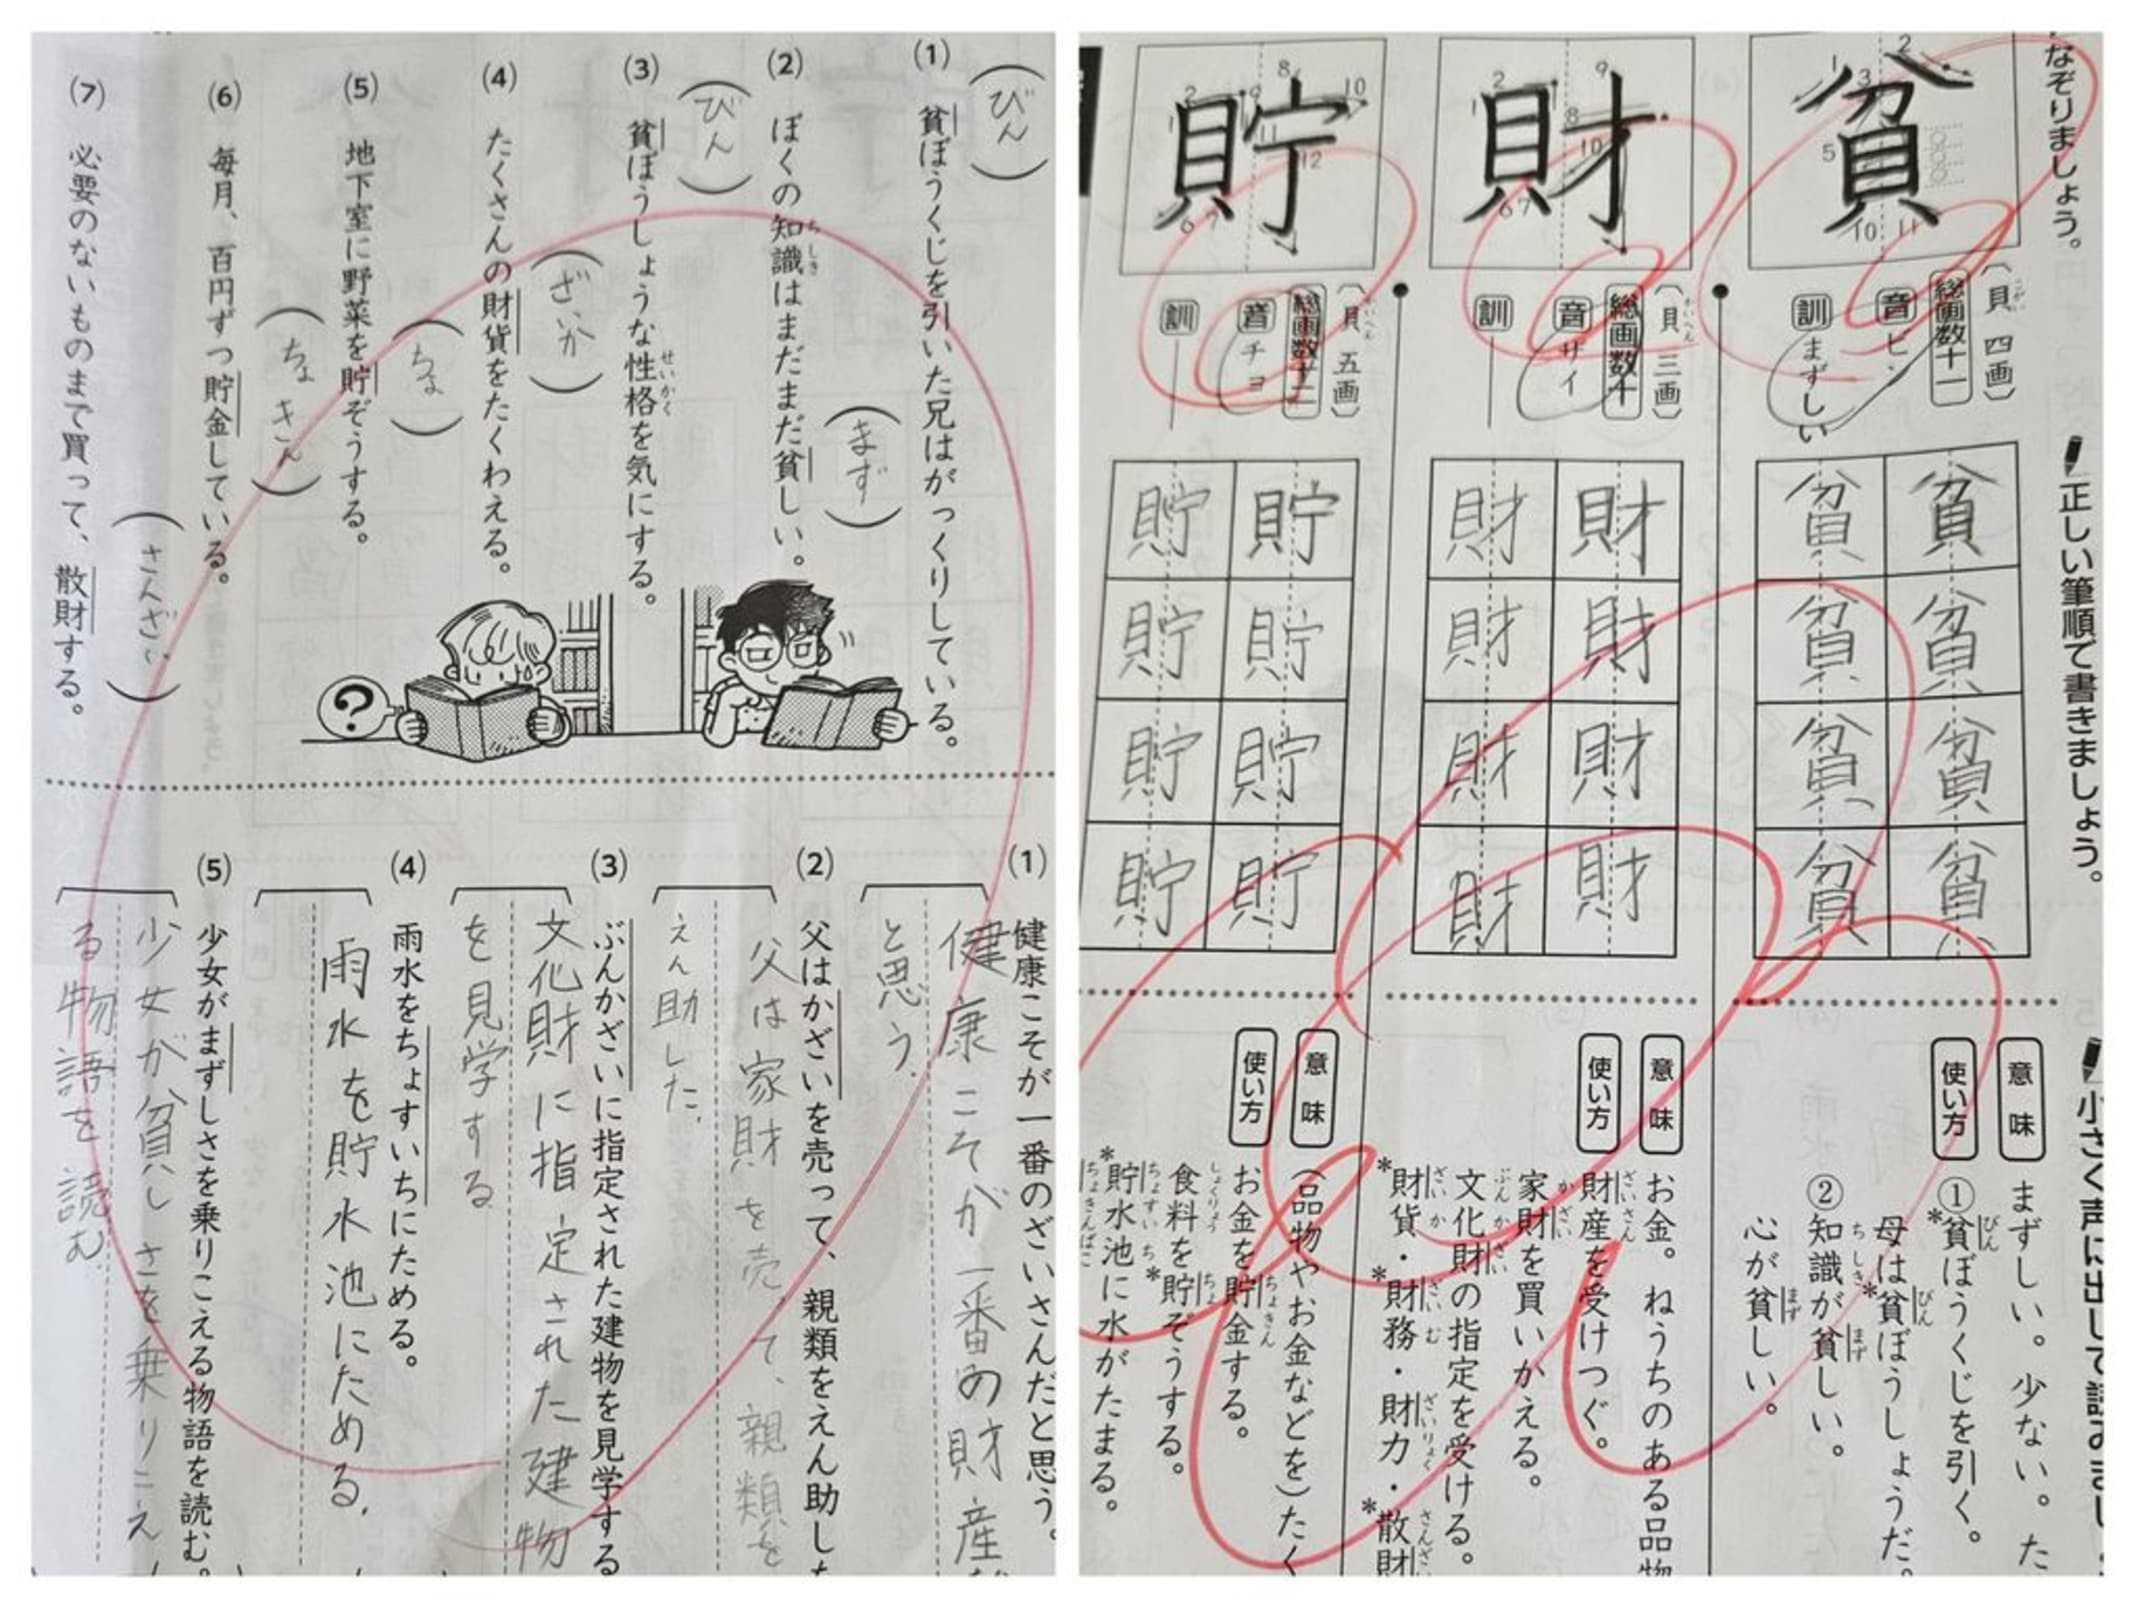 (1) 貧ぼうくじを引いた兄はがっくりしている。
(びん)
(2) ぼくの知識はまだまだ貧しい。
ちしき
(まず)
(3) 貧ぼうしょうな性格を気にする。
せいかく
(びん)
(4) たくさんの財貨をたくわえる。
(ざいか)
(5) 地下室に野菜を貯ぞうする。
(ちょ)
(6) 毎月、百円ずつ貯金している。
(ちょきん)
(7) 必要のないものまで買って、散財する。
(さんざい)
?
(1) 健康こそが一番のざいさんだと思う。
健康こそが一番の財産
と思う。
(2) 父はかざいを売って、親類をえん助した
父は家財を売って、親類を
えん助した。
(3) ぶんかざいに指定された建物を見学する
文化財に指定された建物
を見学する
(4) 雨水をちょすいちにためる。
雨水を貯水池にためる。
(5) 少女がまずしさを乗りこえる物語を読む。
少女が貧しさを乗りこえ
る物語を読む
なぞりましょう。
正しい筆順で書きましょう。
小さく声に出して読みまし
貧
1 2 3 5 10 11
(貝 四画)
こがい
総画数十一
音 ビン
訓 まずしい
貧 貧 貧 貧
貧 貧 貧 貧
意味 まずしい。少ない。た
使い方 ①*貧ぼうくじを引く。
びん
母は*貧ぼうしょうだ。
びん
②知識が貧しい。
ちしき まず
心が貧しい。
まず
財
1 2 6 7 8 9 10
(貝 三画)
かいへん
総画数十
音 ザイ
訓
財 財 財 財
財 財 財 財
意味 お金。ねうちのある品物
使い方 財産を受けつぐ。
ざいさん
家財を買いかえる。
かざい
文化財の指定を受ける。
ぶんかざい
*財貨・*財務・財力・*散財
ざいか ざいむ ざいりょく さんざい
貯
1 2 6 7 8 9 10 11 12
(貝 五画)
かいへん
総画数十二
音 チョ
訓
貯 貯 貯 貯
貯 貯 貯 貯
意味 (品物やお金などを)たく
使い方 お金を貯金する。
ちょきん
食料を*貯ぞうする。
しょくりょう ちょ
*貯水池に水がたまる。
ちょすいち
ちょきんばこ